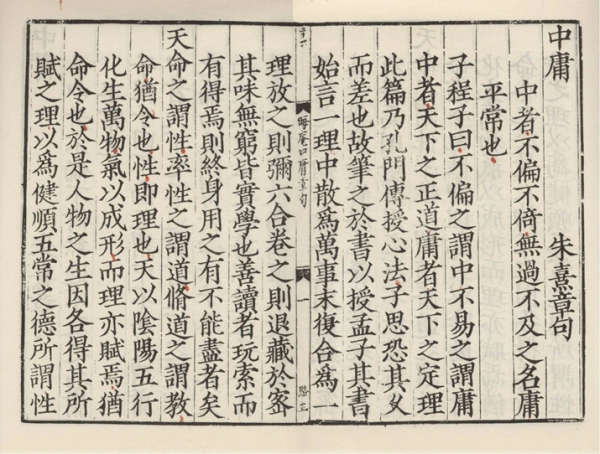 中庸　朱熹章句
中者不偏不倚無過不及之名庸
平常也
子程子曰不偏之謂中不易之謂庸
中者天下之正道庸者天下之定理
此篇乃孔門傳授心法子思恐其乆
而差也故筆之於書以授孟子其書
始言一理中散爲萬事末復合爲一
一
理放之則彌六合卷之則退藏於密
其味無窮皆實學也善讀者玩索而
有得焉則終身用之有不能盡者矣
天命之謂性率性之謂道脩道之謂教
命猶令也性即理也天以陰陽五行
化生萬物氣以成形而理亦賦焉猶
命令也於是人物之生因各得其所
賦之理以爲健順五常之德所謂性